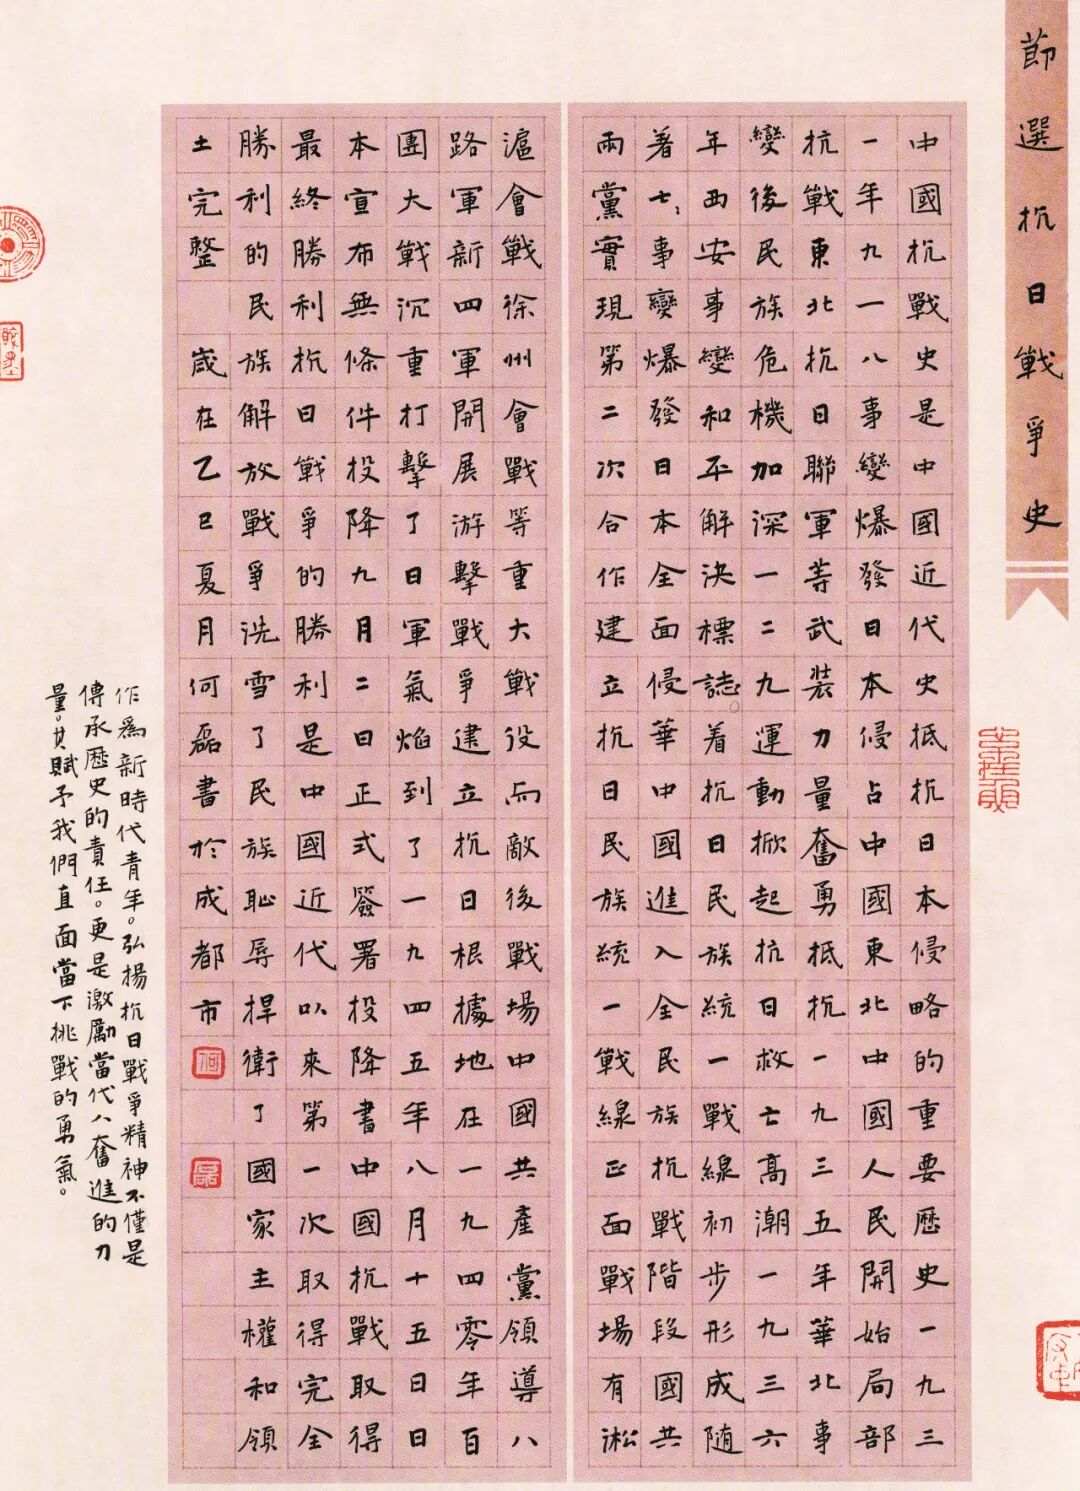 節選抗日戰爭史
中國抗戰史是中國近代史抵抗日本侵略的重要歷史一九三
一年九一八事變爆發日本侵占中國東北中國人民開始局部
抗戰東北抗日聯軍等武裝力量奮勇抵抗一九三五年華北事
變後民族危機加深一二九運動掀起抗日救亡高潮一九三六
年西安事變和平解決標誌。着抗日民族統一戰線初步形成隨
著七〻事變爆發日本全面侵華中國進入全民族抗戰階段國共
兩黨實現第二次合作建立抗日民族統一戰線正面戰場有淞
滬會戰徐州會戰等重大戰役而敵後戰場中國共產黨領導八
路軍新四軍開展游擊戰爭建立抗日根據地在一九四零年百
團大戰沉重打擊了日軍氣焰到了一九四五年八月十五日日
本宣布無條件投降九月二日正式簽署投降書中國抗戰取得
最終勝利抗日戰爭的勝利是中國近代以來第一次取得完全
勝利的民族解放戰爭洗雪了民族恥辱捍衛了國家主權和領
土完整 歲在乙巳夏月何磊書於成都市
何
磊
作爲新時代青年。弘揚抗日戰爭精神不僅是
傳承歷史的責任。更是激勵當代人奮進的力
量。其賦予我們直面當下挑戰的勇氣。